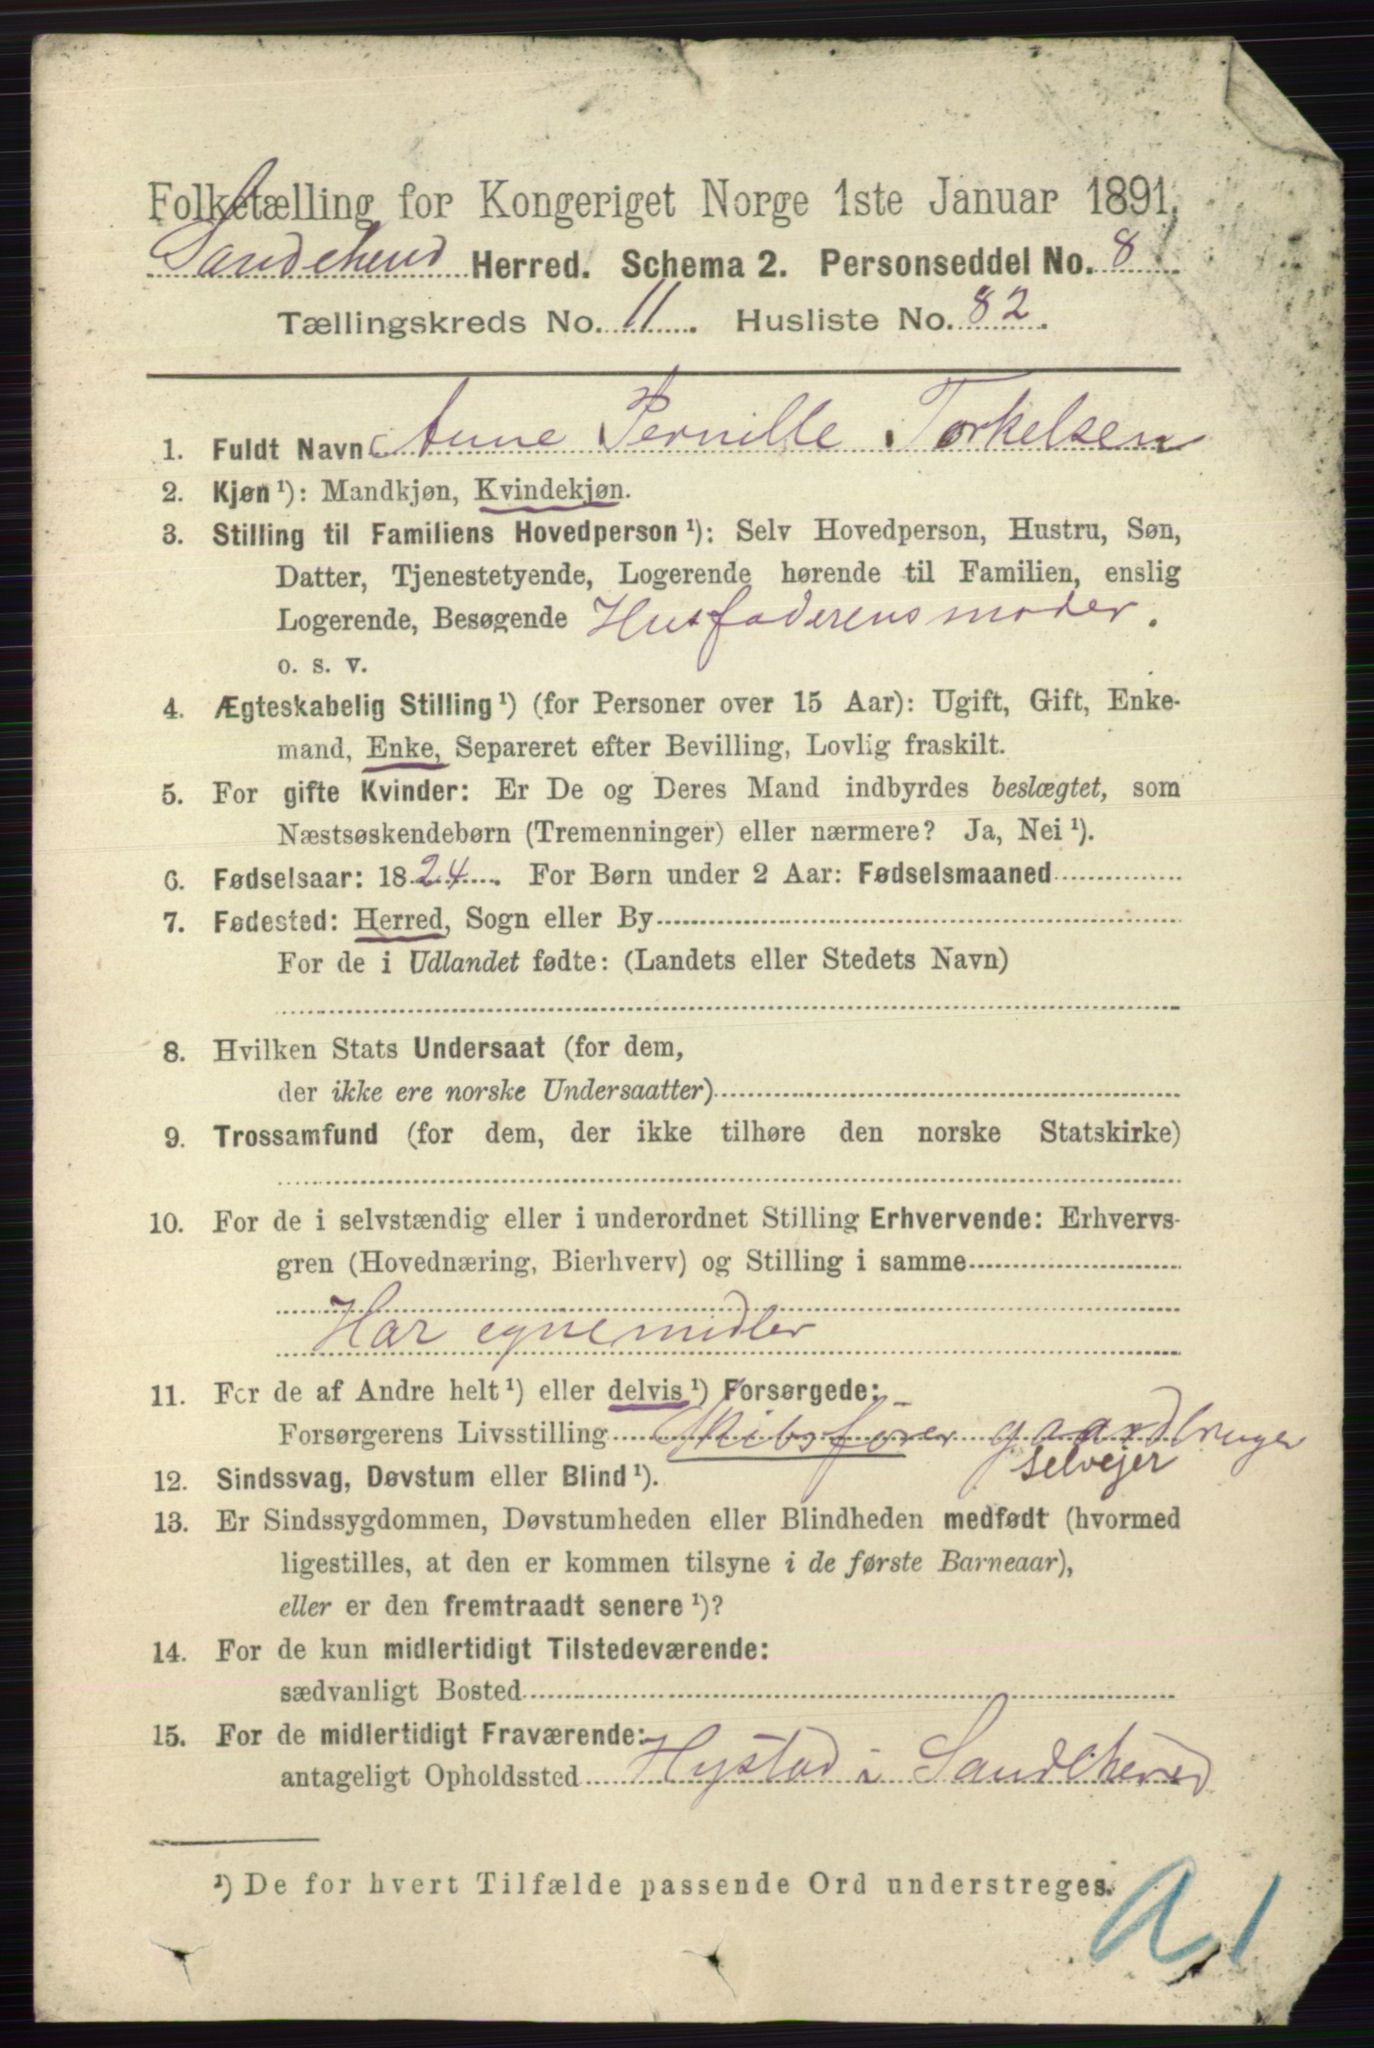 Folketælling for Kongeriget Norge 1ste Januar 1891.
Sandeherred Herred. Schema 2. Personseddel No. 8
Tællingskreds No. 11. Husliste No. 82.
1. Fuldt Navn Anne Pernille Torkelsen
2. Kjøn ¹): Mandkjøn, Kvindekjøn.
3. Stilling til Familiens Hovedperson ¹): Selv Hovedperson, Hustru, Søn,
Datter, Tjenestetyende, Logerende hørende til Familien, enslig
Logerende, Besøgende Husfaderens moder.
o. s. v.
4. Ægteskabelig Stilling ¹) (for Personer over 15 Aar): Ugift, Gift, Enke-
mand, Enke, Separeret efter Bevilling, Lovlig fraskilt.
5. For gifte Kvinder: Er De og Deres Mand indbyrdes beslægtet, som
Næstsøskendebørn (Tremenninger) eller nærmere? Ja, Nei ¹).
6. Fødselsaar: 1824. For Børn under 2 Aar: Fødselsmaaned
7. Fødested: Herred, Sogn eller By
For de i Udlandet fødte: (Landets eller Stedets Navn)
8. Hvilken Stats Undersaat (for dem,
der ikke ere norske Undersaatter)
9. Trossamfund (for dem, der ikke tilhøre den norske Statskirke)
10. For de i selvstændig eller i underordnet Stilling Erhvervende: Erhvervs-
gren (Hovednæring, Bierhverv) og Stilling i samme
Har egne midler
11. For de af Andre helt ¹) eller delvis ¹) Forsørgede:
Forsørgerens Livsstilling Skibsfører gaardbruger
selvejer
12. Sindssvag, Døvstum eller Blind ¹).
13. Er Sindssygdommen, Døvstumheden eller Blindheden medfødt (hvormed
ligestilles, at den er kommen tilsyne i de første Barneaar),
eller er den fremtraadt senere ¹)?
14. For de kun midlertidigt Tilstedeværende:
sædvanligt Bosted
15. For de midlertidigt Fraværende:
antageligt Opholdssted Hystad i Sandeherred
¹) De for hvert Tilfælde passende Ord understreges.
A. 1